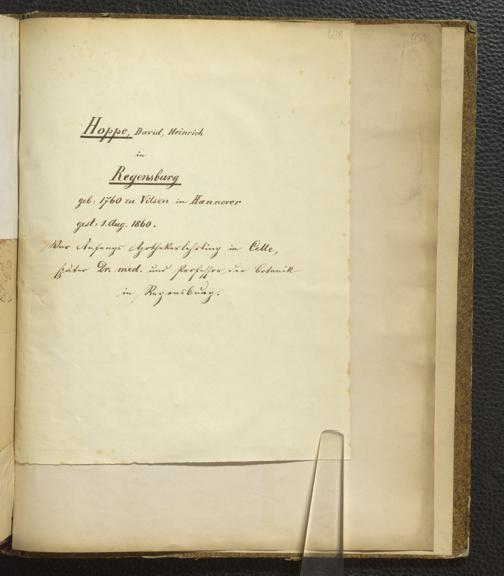 638
Hoppe, David, Heinrich
in
Regensburg
geb: 1760 zu Vilsen in Hannover
gest: 1. Aug. 1860.
War Anfangs Apothekerlehrling in Celle,
später Dr. med. und Professor der Botanik
in Regensburg.